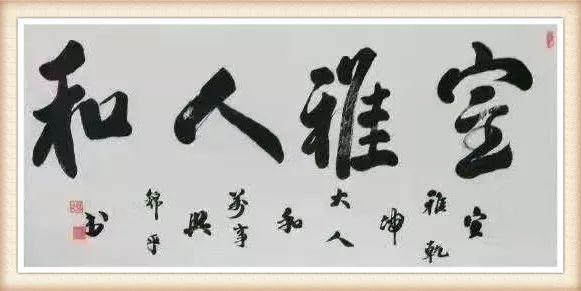 室雅人和
室雅乾坤大人和萬事興
平书